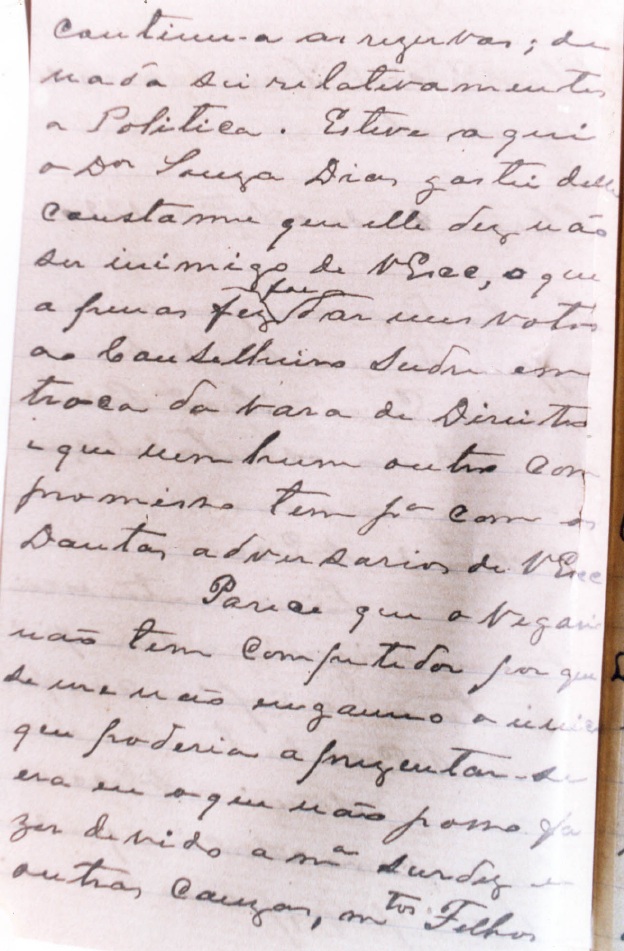 continu-a as rezervas; de
nada sei relativamentes
a Politica. Esteve aqui
o Dor Souza Dias gostei delle
constame que elle diz não
ser inimigo de VExce, o que
apenas fez dar seus votos
ao Conselheiro Sudre em
troca da vara de Direito
e que nem hum outro com
promisso tem pa com os
Dantas adversarios de VExce
Parece que o
não tem competidor por que
se me não enganno o unico
que poderia aprezentar-se
era eu o que não posso fa
zer devido a ma surdez e
outras cauzas, mtos Felhos